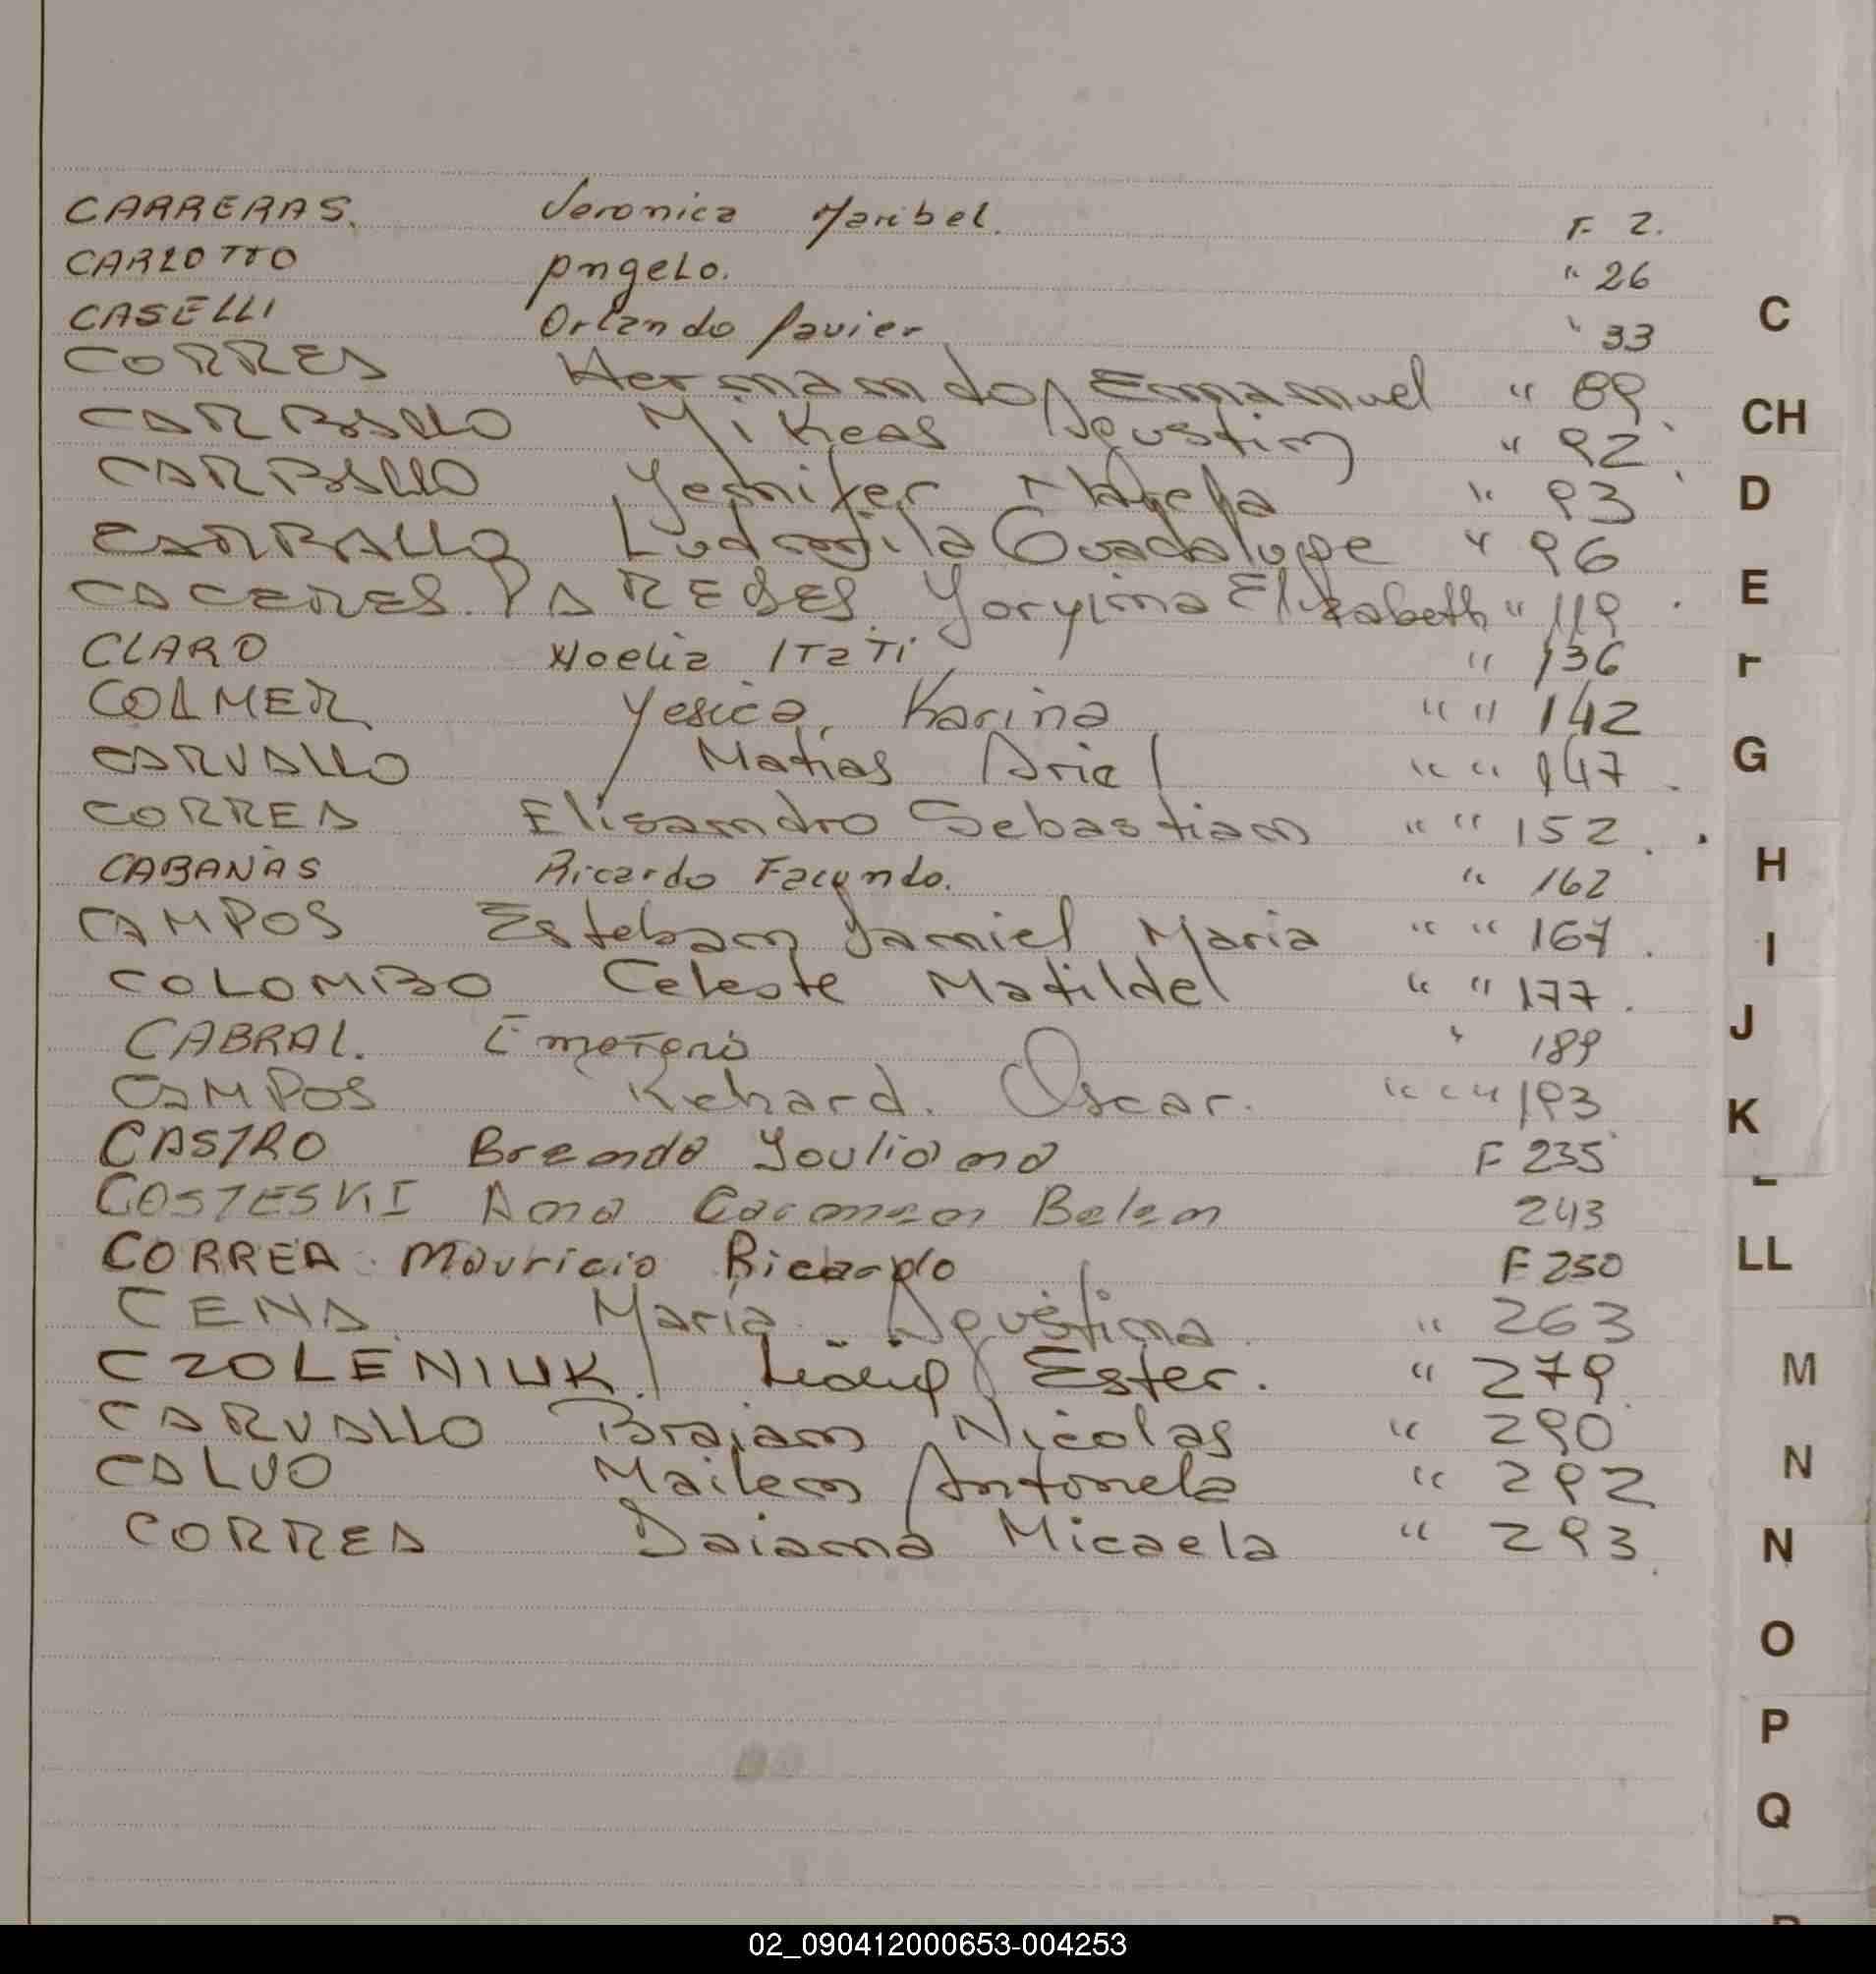 CARRERAS. Veronica Maribel. F. 2.
CARLOTTO Angelo. " 26
CASELLI Orlando Javier " 33
C
CORREA Hernando Emmanuel " 89
CARBALLO Mikeas Agustin " 92
CH
CARBALLO Yennifer " 93
D
CARBALLO Ludmila Guadalupe " 96
CACERES PAREDES Elizabeth " 119
E
CLARO Noelia ITATI " 136
F
COLMER Yesica Karina " " 142
CARVALLO Matias Ariel " " 147
G
CORREA Elisandro Sebastian " " 152
CABAÑAS Ricardo Facundo. " 162
H
CAMPOS Esteban Jamiel Maria " " 167
I
COLOMBO Celeste Matilde " " 177
CABRAL. Emeterio " 189
J
CAMPOS Richard. Oscar. " " 193
K
CASTRO Brenda Youliana F 235
L
COSTESKI Ana Carmen Belen 243
CORREA Mauricio Ricardo F 250
LL
CENA Maria Agustina " 263
CZOLENIUK Ester. " 279
M
CARVALLO Braian Nicolas " 290
CALVO Mailen Antonela " 292
N
CORREA Daiana Micaela " 293
N
O
P
Q
02_090412000653-004253